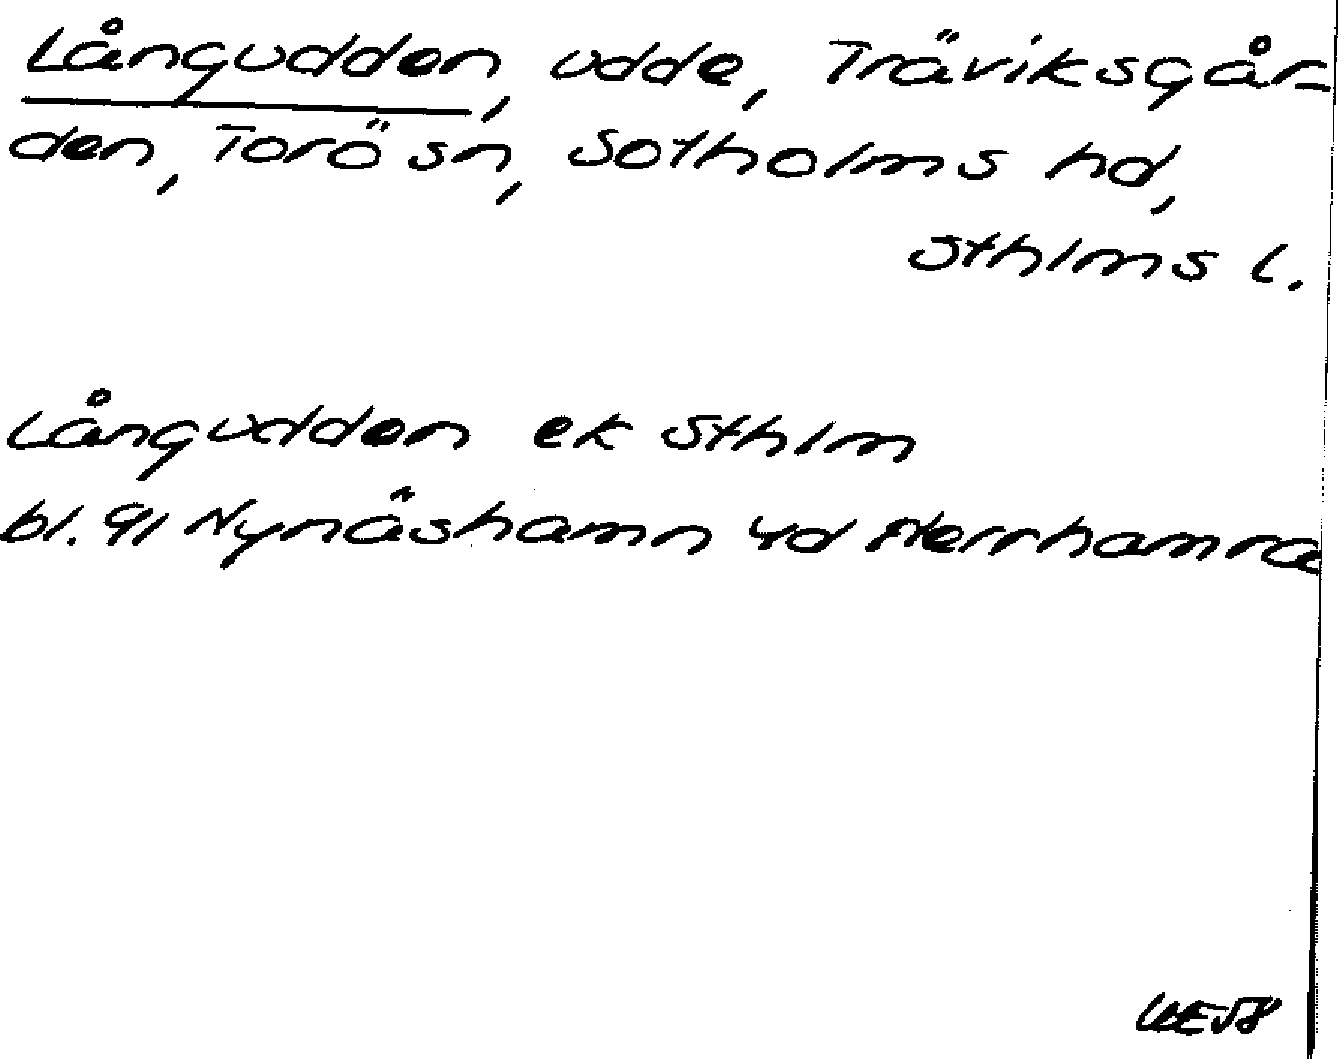 Långudden, udde, Träviksgår-
den, Torö sn, Sotholms hd,
Sthlms l.
Långudden ek Sthlm
bl. 91 Nynäshamn 4d Herrhamra